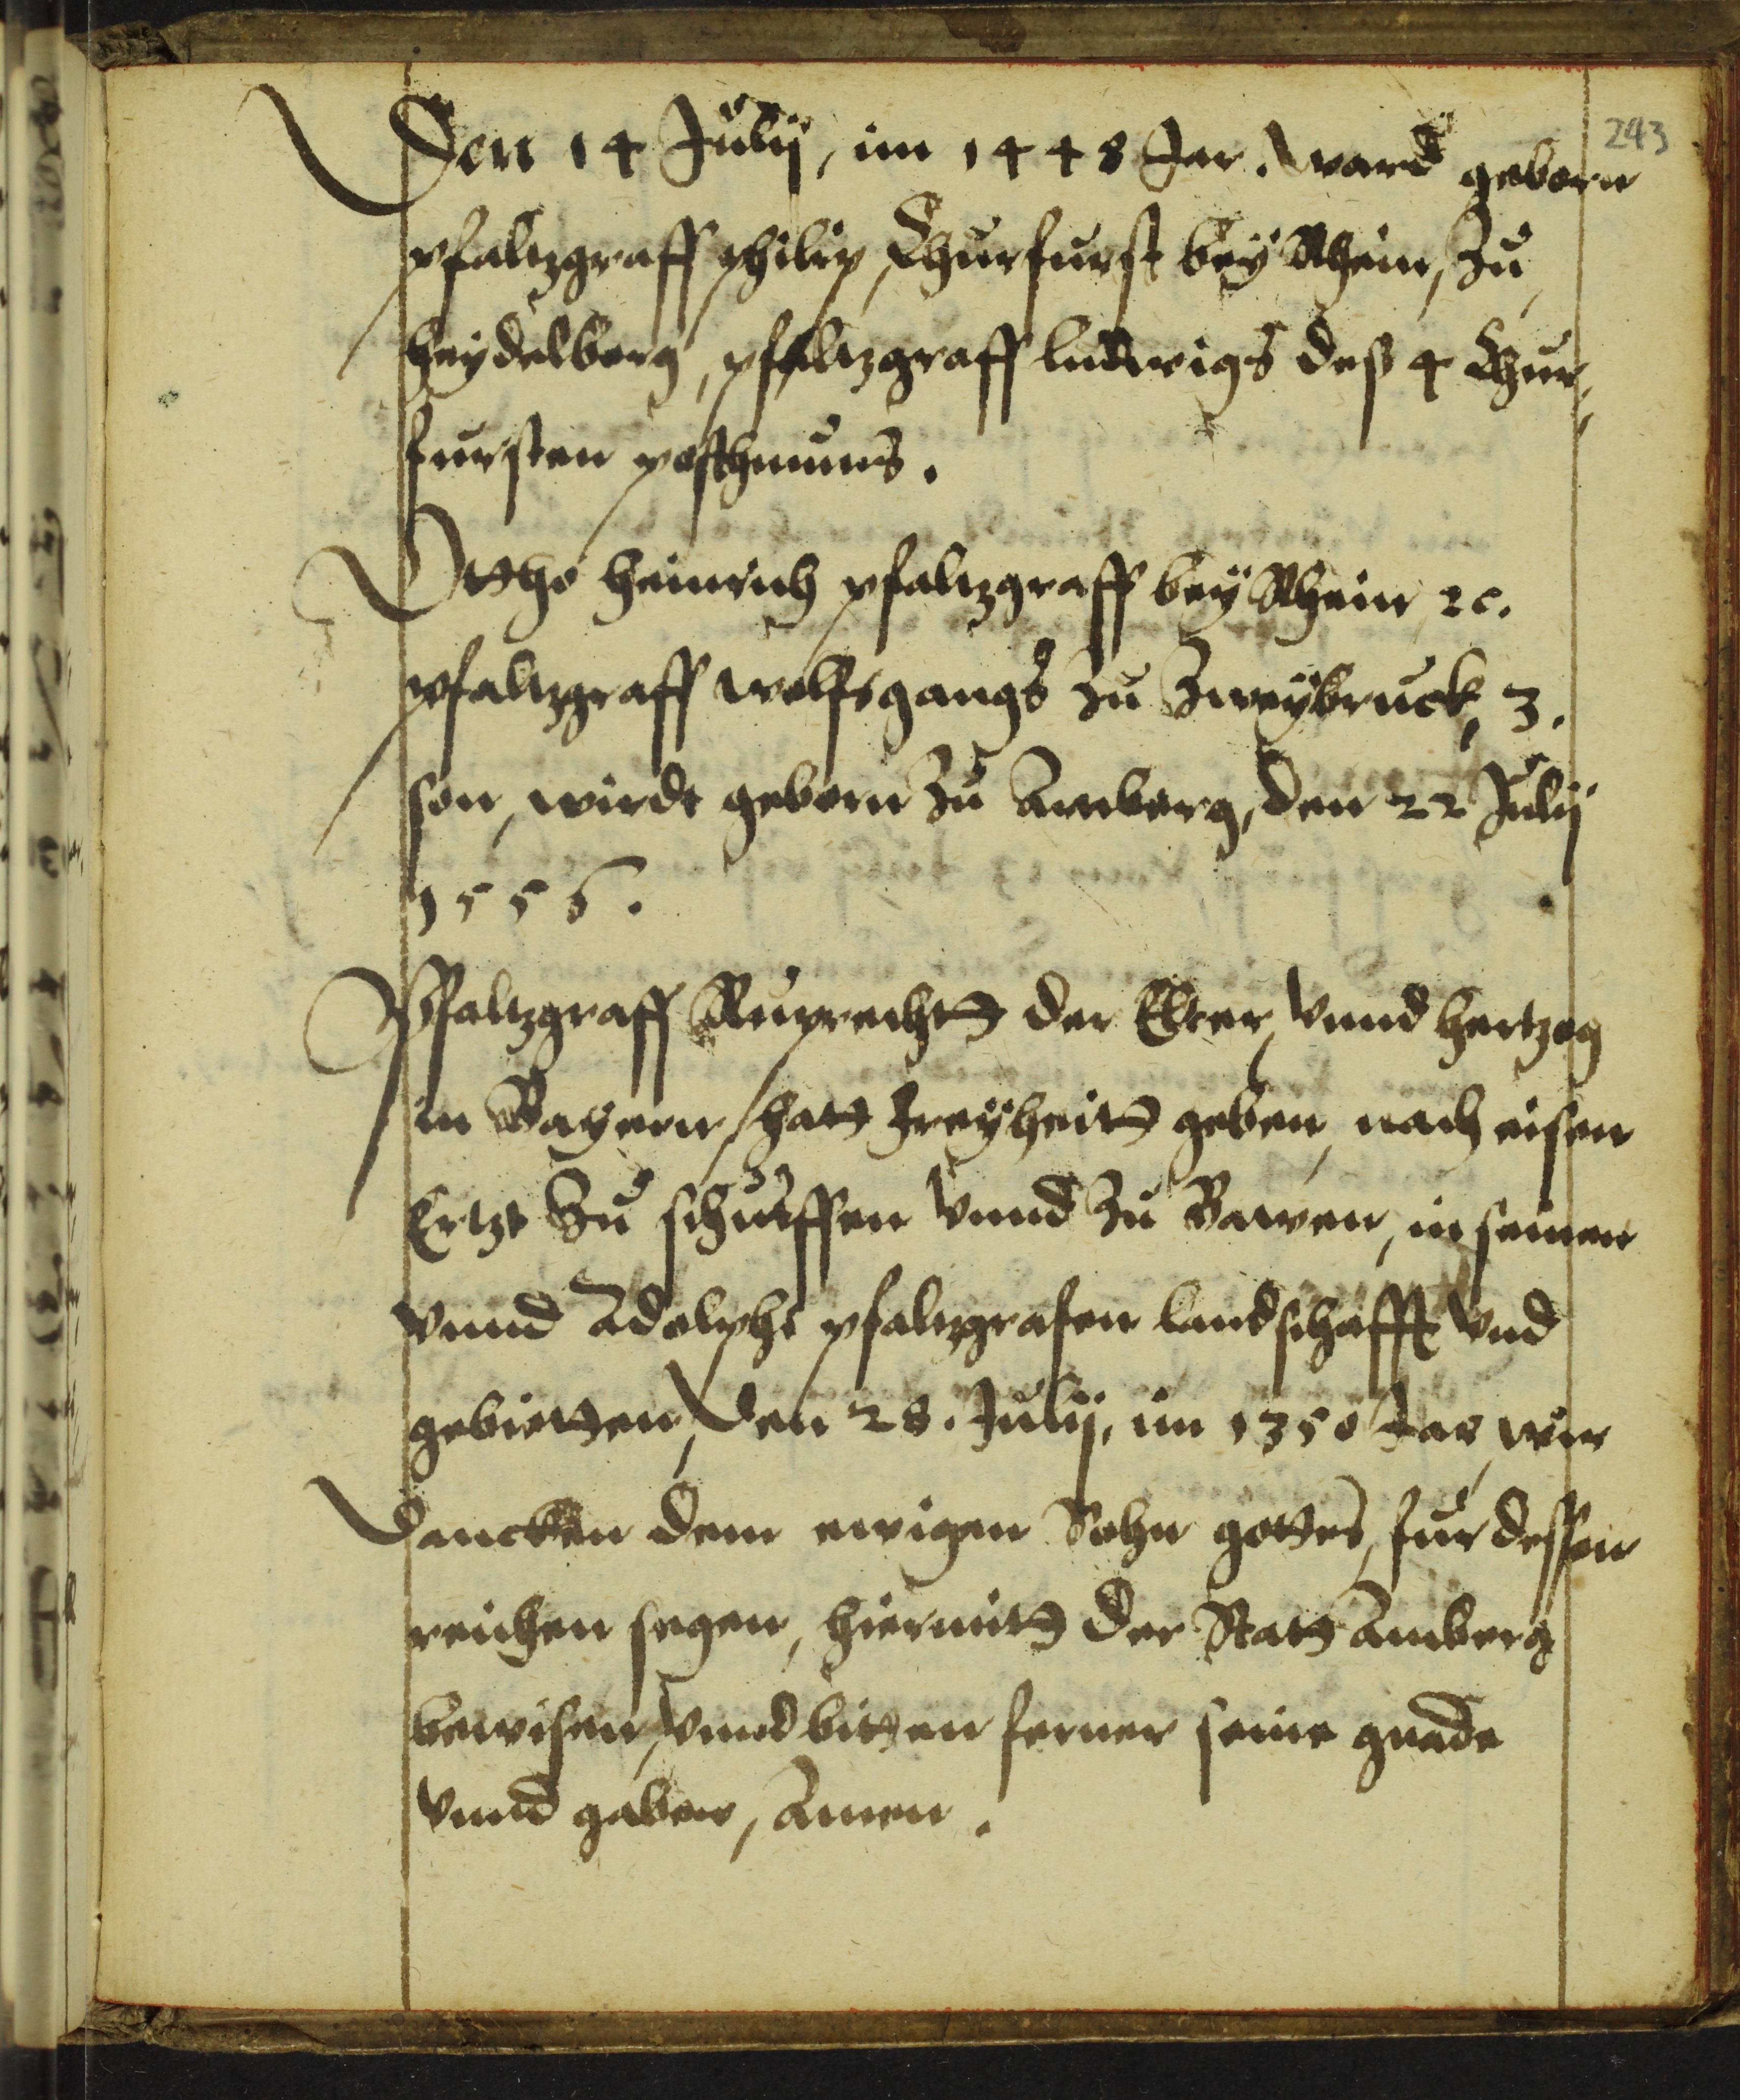 243
Den 14 Julij, im 1448 Jar. ward geborn
pfaltzgraff philip, Churfurst bey Rhein, zu
heydelberg, pfaltzgraff ludwigs deß 4 Chur,,
fursten posthumus.
Ottho heinrich pfaltzgraff bey Rhein, 2c.
pfaltzgraff wolfsgangs zu Zweybruck, 3.
son, wirdt geborn zu Amberg, den 22 Julij
1556.
Pfaltzgraff Ruprechtt der Elter, vnnd hertzog
in Bayern, hatt freyheitt geben, nach eisen
Ertzt zu schürffen vnnd zu Bawen, in seinen
vnnd Adolphs pfaltzgrafen landschafft vnd
gebietten, den 28. Julij, im 1350 Jar, wir
dancken dem ewigen Sohn gottes, fur dessen
reichen segen, hiermitt der Statt Amberg
bewisen, vnnd bitten ferner seine gnade
vnnd gaben, Amen.